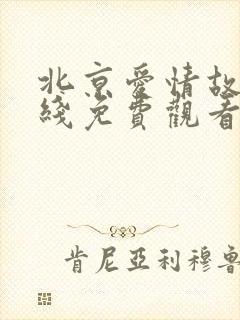 北京愛情故
綫免費觀看
肯尼亞利穆魯